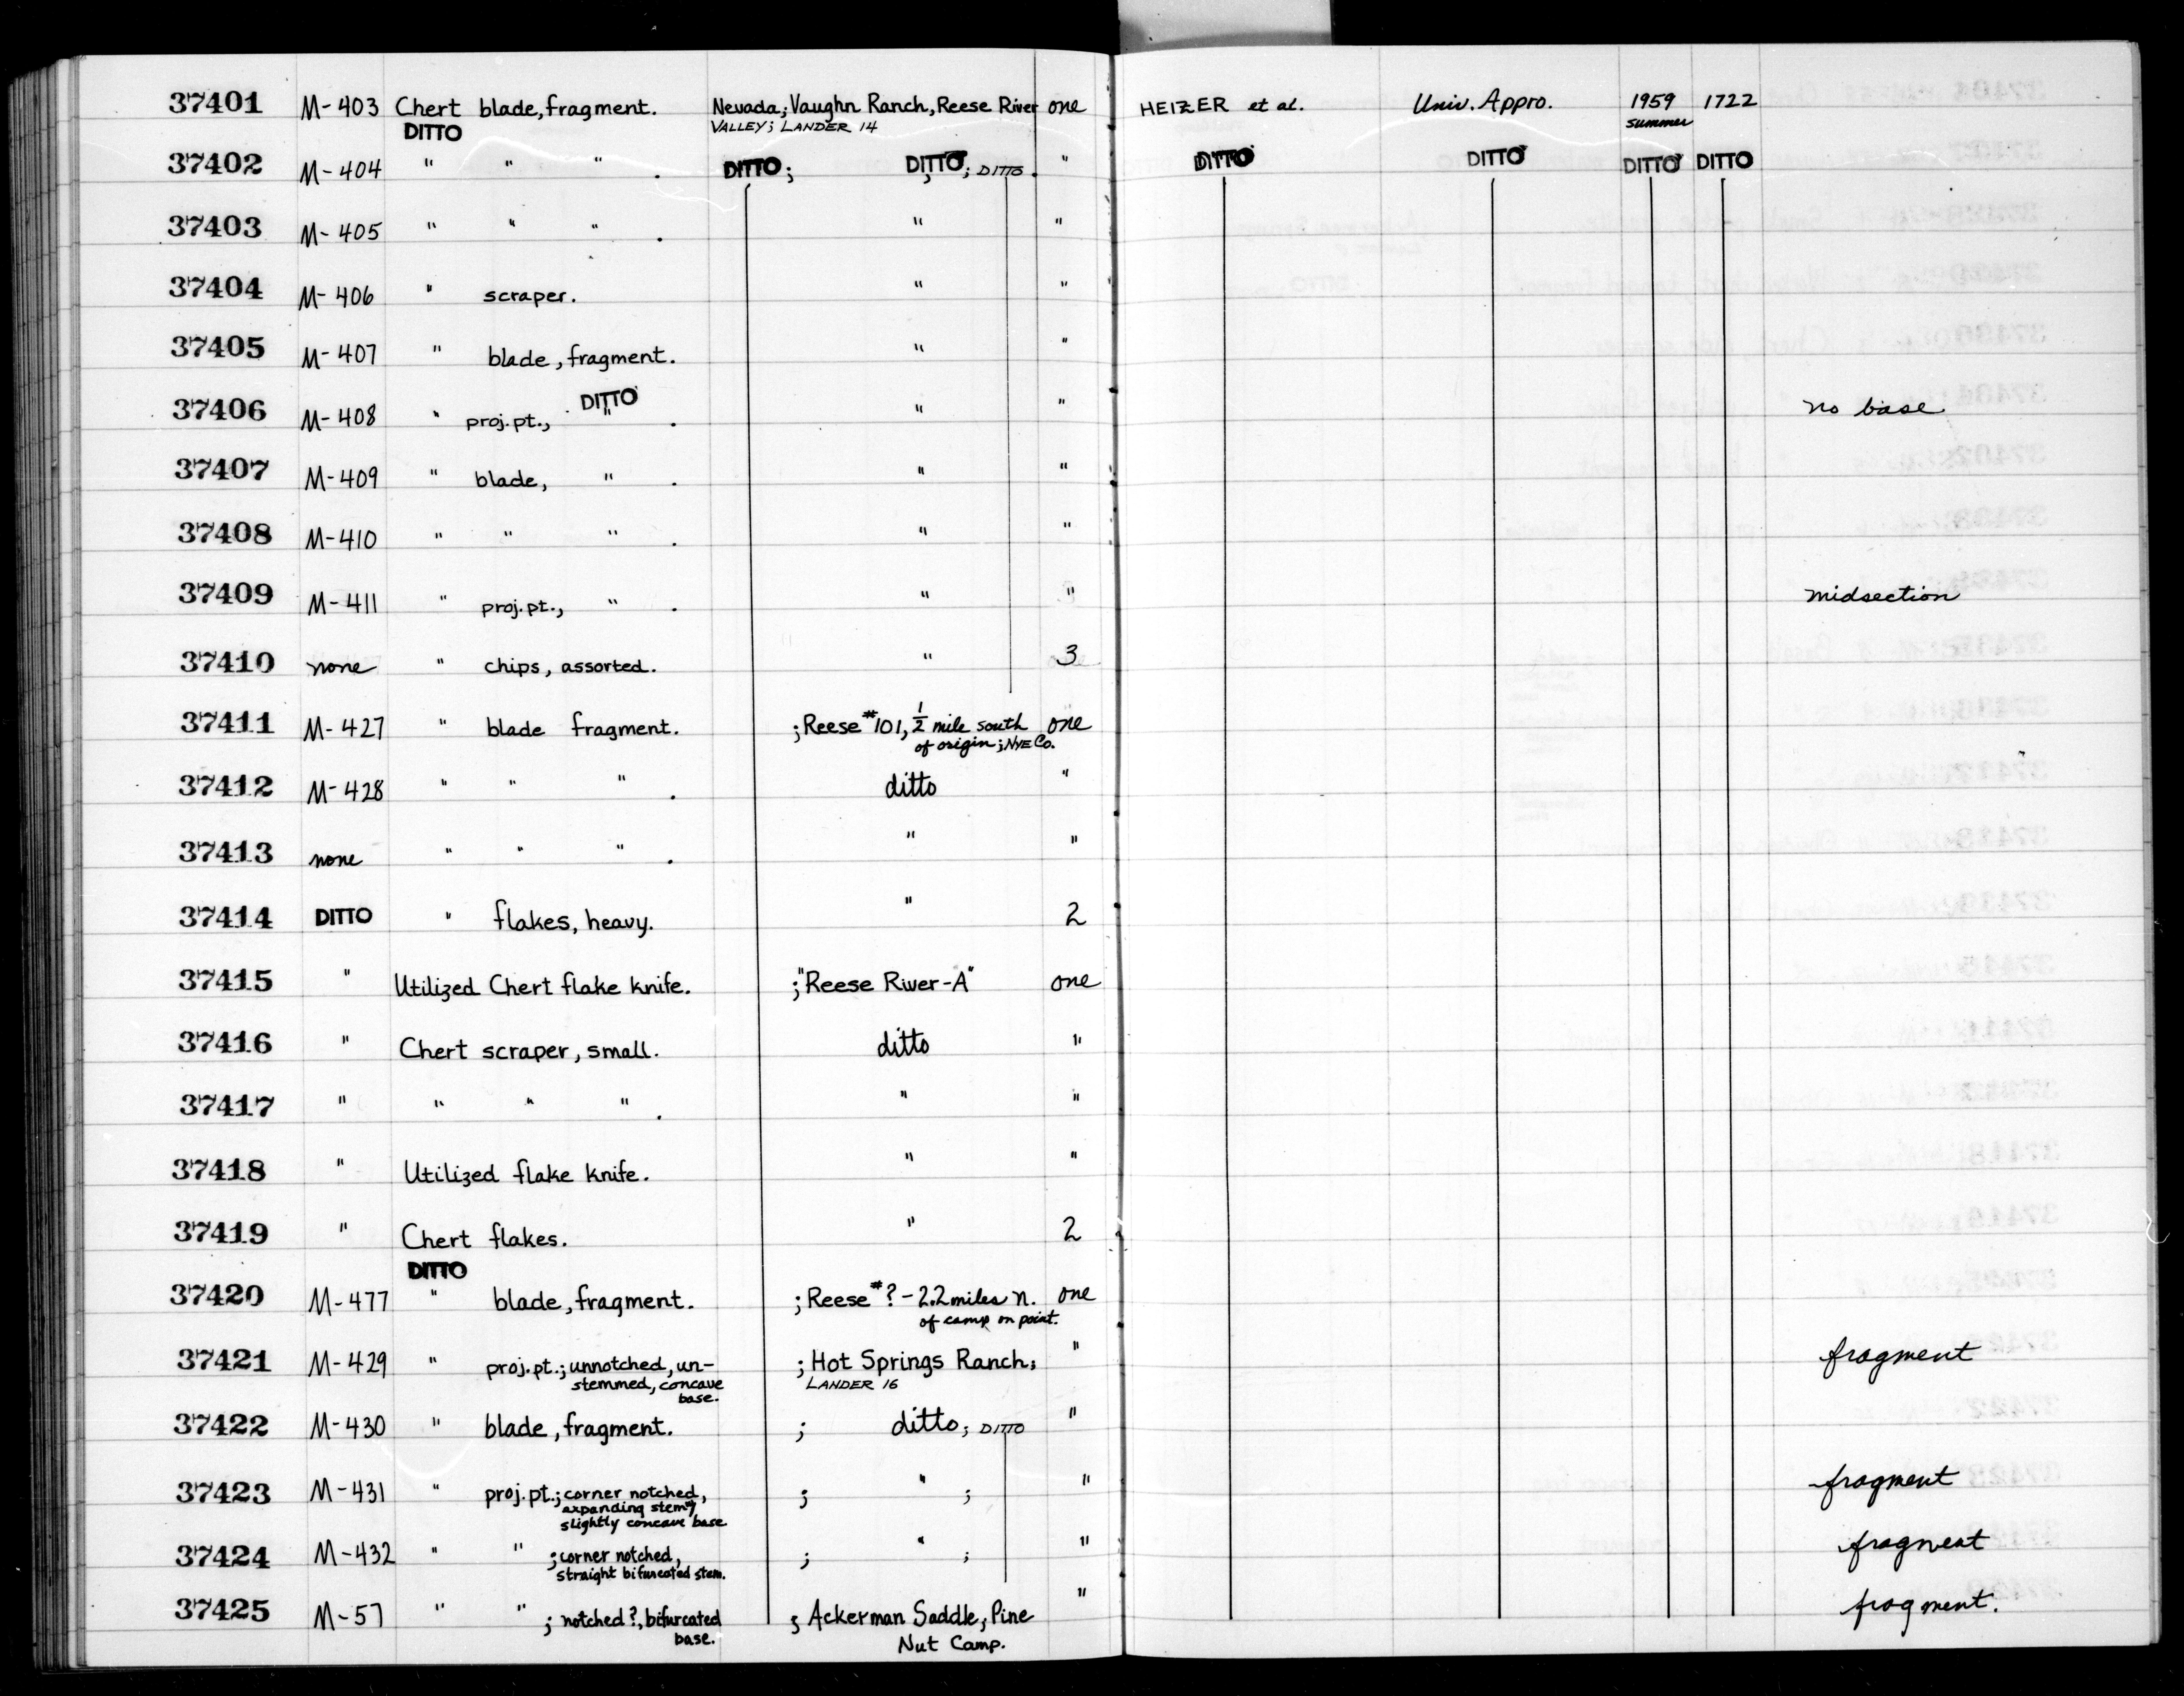 37401 M-403 Chert blade, fragment. Nevada; Vaughn Ranch, Reese River one HEIZER et al. Univ. Appro. 1959 1722
DITTO VALLEY; LANDER 14 summer
37402 M-404 " " " . DITTO; DITTO; DITTO. " DITTO DITTO DITTO DITTO
37403 M-405 " " " . " "
37404 M-406 " scraper. " "
37405 M-407 " blade, fragment. " "
DITTO
37406 M-408 " proj. pt., " . " " no base
37407 M-409 " blade, " . " "
37408 M-410 " " " . " "
37409 M-411 " proj. pt., " . " " midsection
37410 none " chips, assorted. " 3
37411 M-427 " blade fragment. ; Reese #101, 1/2 mile south one
of origin; NYE Co.
37412 M-428 " " " . ditto "
37413 none " " " . " "
37414 DITTO " flakes, heavy. " 2
37415 " Utilized Chert flake knife. ; "Reese River-A" one
37416 " Chert scraper, small. ditto "
37417 " " " " . " "
37418 " Utilized flake knife. " "
37419 " Chert flakes. " 2
DITTO
37420 M-477 " blade, fragment. ; Reese #? - 2.2 miles n. one
of camp on point.
37421 M-429 " proj. pt.; unnotched, un- ; Hot Springs Ranch; " fragment
stemmed, concave LANDER 16
base.
37422 M-430 " blade, fragment. ; ditto; DITTO "
37423 M-431 " proj. pt.; corner notched, ; " ; " fragment
expanding stem,
slightly concave base
37424 M-432 " " ; corner notched, ; " ; " fragment
straight bifurcated stem.
37425 M-57 " " ; notched?, bifurcated ; Ackerman Saddle, Pine " fragment.
base. Nut Camp.